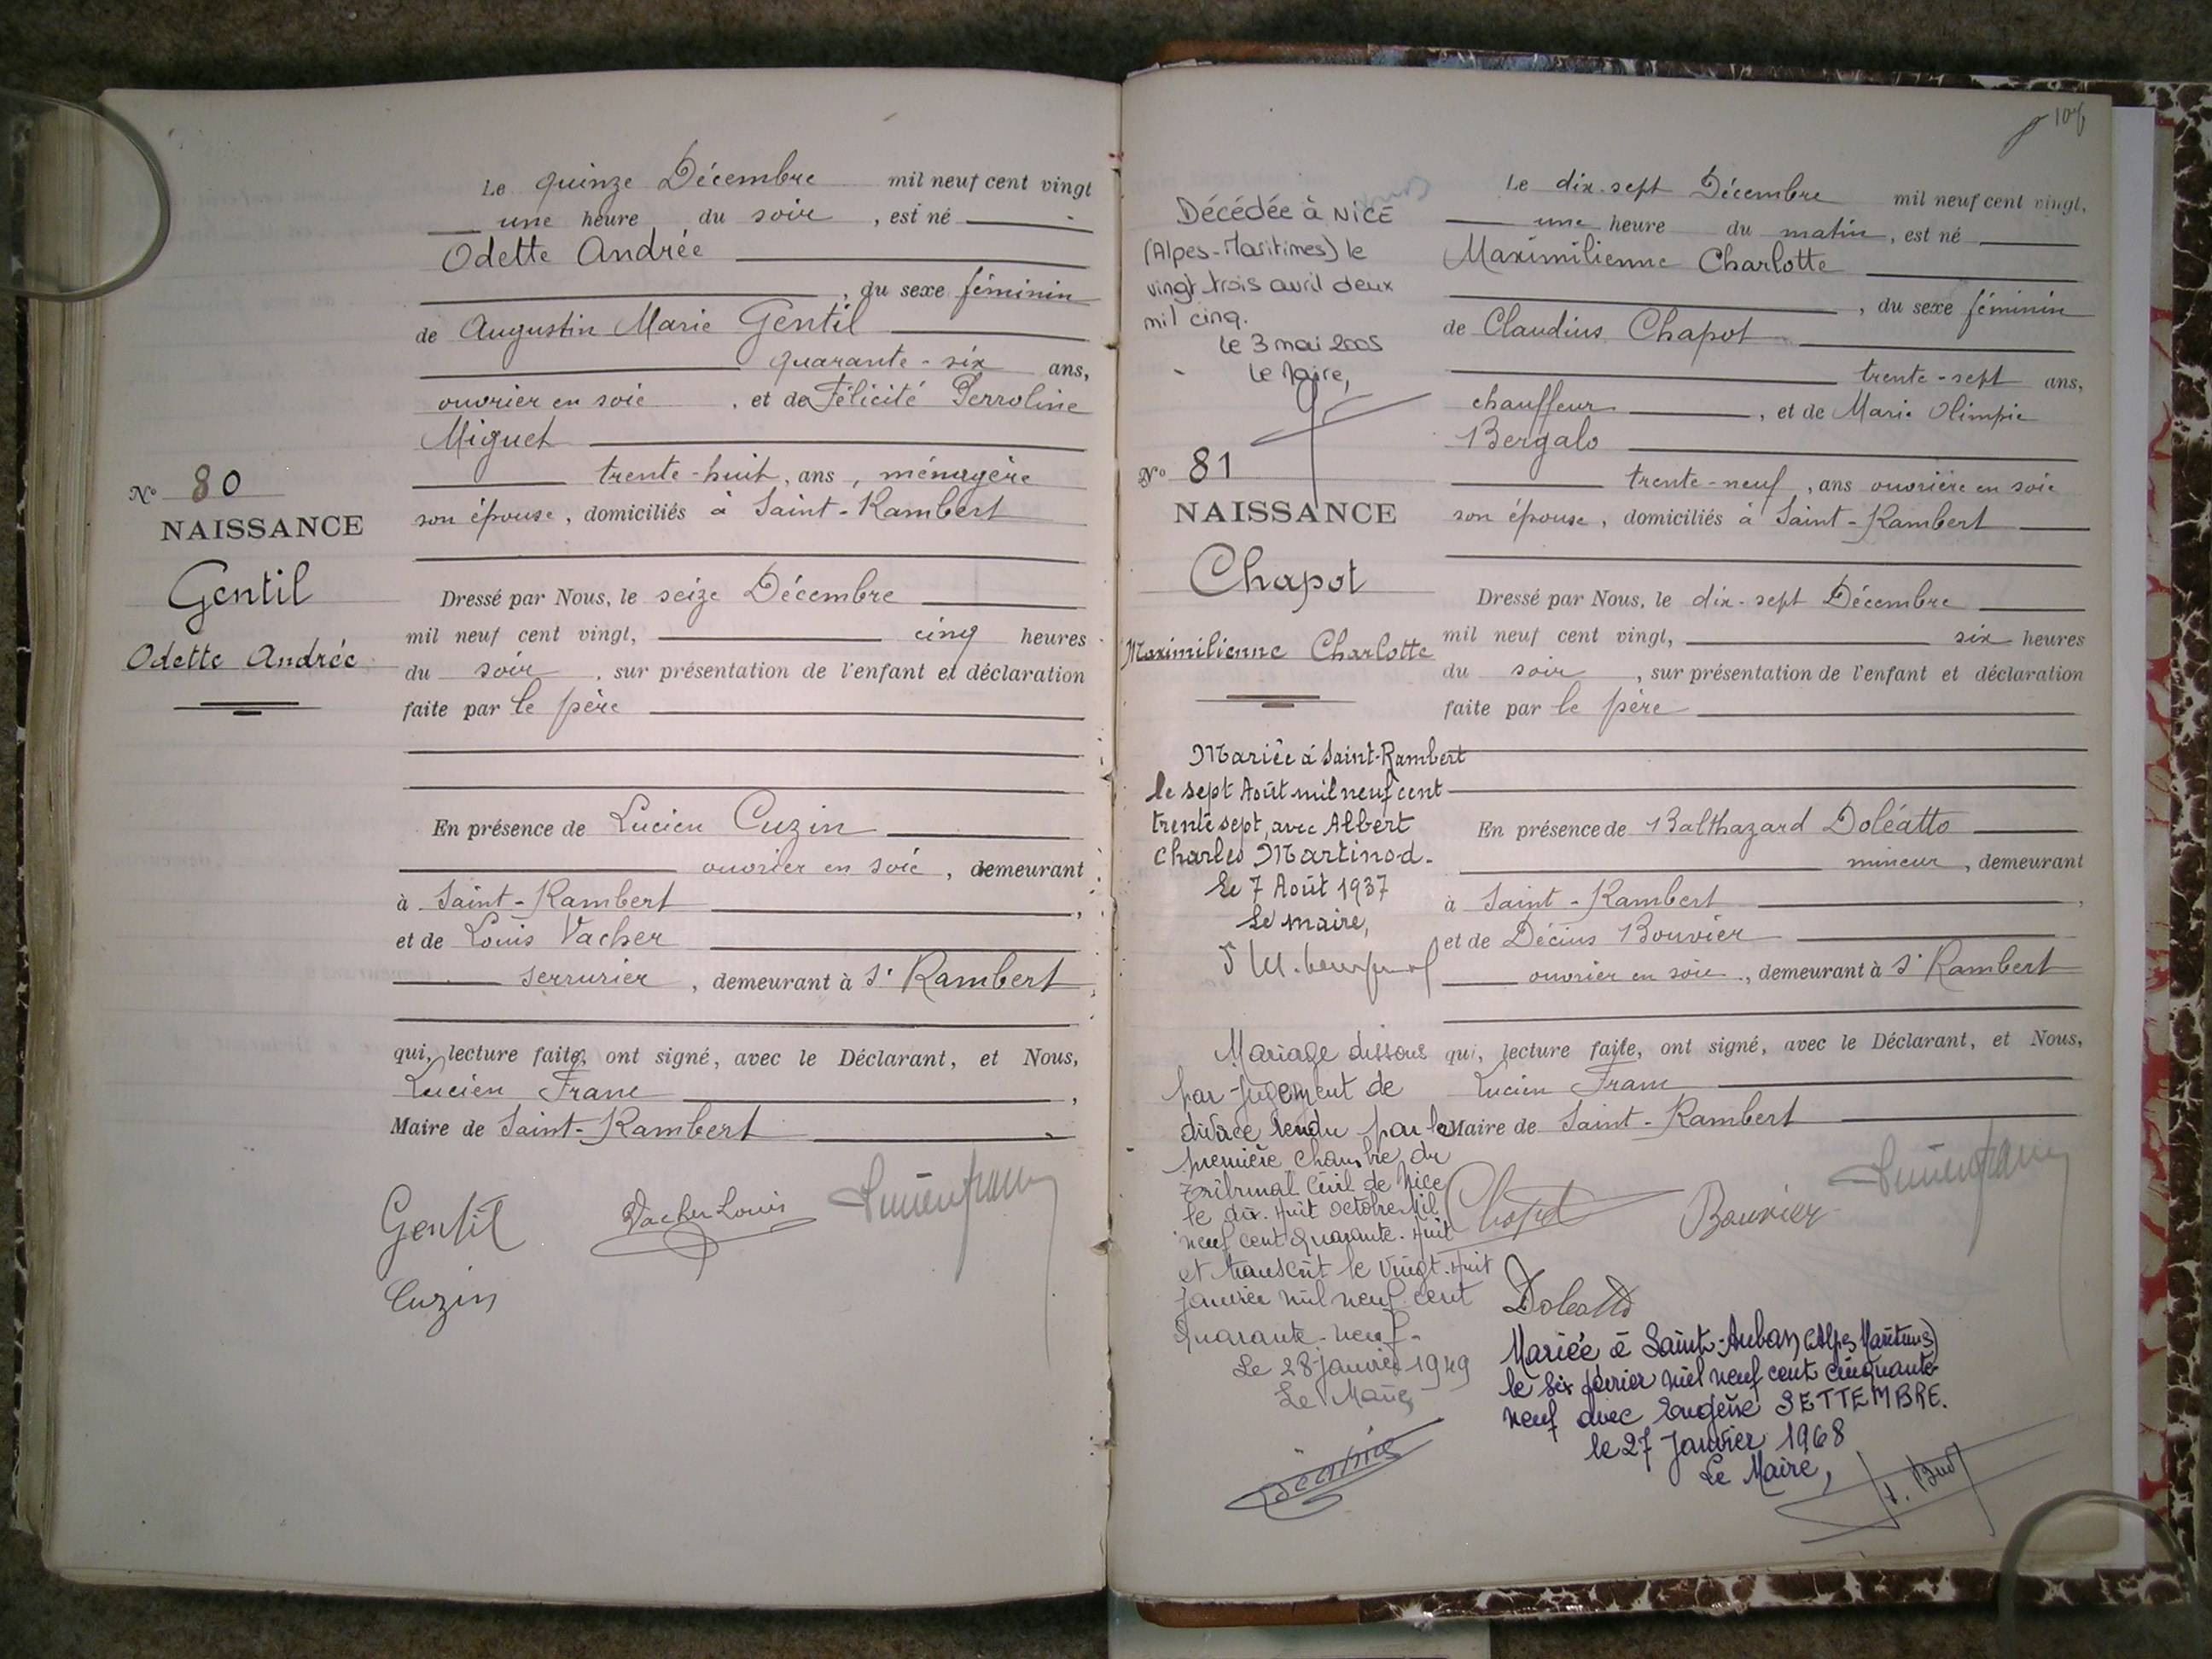 Le quinze Décembre mil neuf cent vingt
une heure du soir, est né
Odette Andrée
, du sexe féminin
de Augustin Marie Gentil
quarante-six ans,
ouvrier en soie, et de Félicité Perroline
Miguet
trente-huit, ans, ménagère
son épouse, domiciliés à Saint-Rambert
N° 80
NAISSANCE
Gentil
Odette Andrée
Dressé par Nous, le seize Décembre
mil neuf cent vingt, cinq heures
du soir, sur présentation de l'enfant et déclaration
faite par le père
En présence de Lucien Cuzin
ouvrier en soie, demeurant
à Saint-Rambert,
et de Louis Vacher
serrurier, demeurant à St Rambert,
qui, lecture faite, ont signé, avec le Déclarant, et Nous,
Lucien Franc,
Maire de Saint-Rambert
Gentil
Vacher Louis
Lucien Franc
Cuzin
106
Décédée à NICE
(Alpes-Maritimes) le
vingt trois avril deux
mil cinq.
le 3 mai 2005
Le Maire,
N° 81
NAISSANCE
Chapot
Maximilienne Charlotte
Mariée à Saint-Rambert
le sept Août mil neuf cent
trente sept, avec Albert
Charles Martinod.
Le 7 Août 1937
Le maire,
Mariage dissous
par jugement de
divorce rendu par la
première Chambre du
Tribunal Civil de Nice
le dix-huit octobre mil
neuf cent quarante-huit
et transcrit le vingt-huit
janvier mil neuf cent
quarante-neuf.
Le 28 janvier 1949
Le Maire,
Le dix-sept Décembre mil neuf cent vingt,
une heure du matin, est né
Maximilienne Charlotte
, du sexe féminin
de Claudius Chapot
trente-sept ans,
chauffeur, et de Marie Olimpie
Bergalo
trente-neuf, ans ouvrière en soie
son épouse, domiciliés à Saint-Rambert
Dressé par Nous, le dix-sept Décembre
mil neuf cent vingt, six heures
du soir, sur présentation de l'enfant et déclaration
faite par le père
En présence de Balthazard Doléatto
mineur, demeurant
à Saint-Rambert,
et de Décius Bouvier
ouvrier en soie, demeurant à St Rambert
qui, lecture faite, ont signé, avec le Déclarant, et Nous,
Lucien Franc
Maire de Saint-Rambert
Chapot
Bouvier
Lucien Franc
Doleatto
Mariée à Saint-Auban (Alpes Maritimes)
le six février mil neuf cent cinquante
neuf avec Eugène SETTEMBRE.
le 27 Janvier 1968
Le Maire,